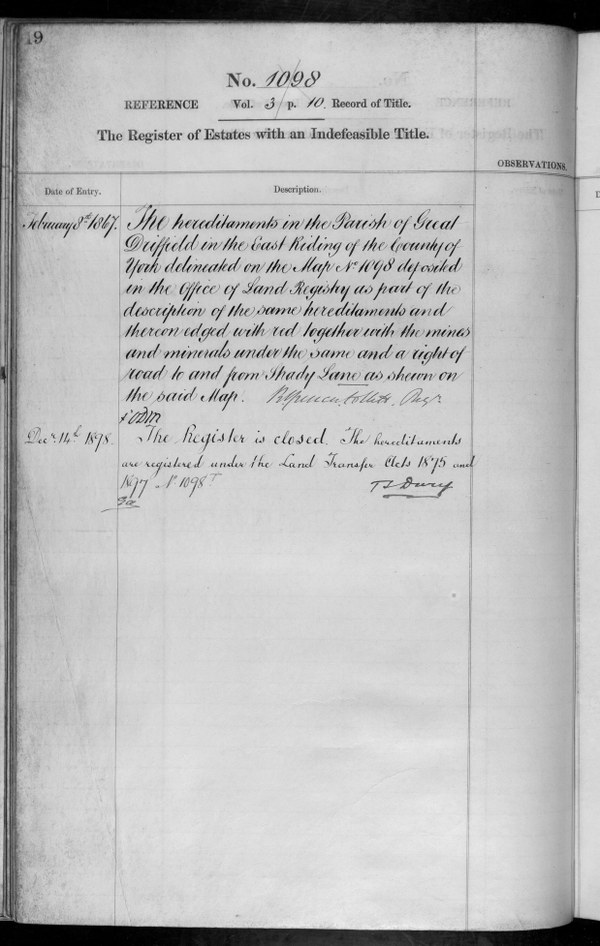 19
No. 1098
REFERENCE Vol. 3 p. 10. Record of Title.
The Register of Estates with an Indefeasible Title.
OBSERVATIONS.
Date of Entry. Description.
February 8th 1867. The hereditaments in the Parish of Great
Driffield in the East Riding of the County of
York delineated on the Map No 1098 deposited
in the Office of Land Registry as part of the
description of the same hereditaments and
thereon edged with red together with the mines
and minerals under the same and a right of
road to and from Shady Lane as shewn on
the said Map. Brent Spencer Follett Regr.
Decr. 14th 1898. The Register is closed. The hereditaments
are registered under the Land Transfer Acts 1875 and
1897 No 1098